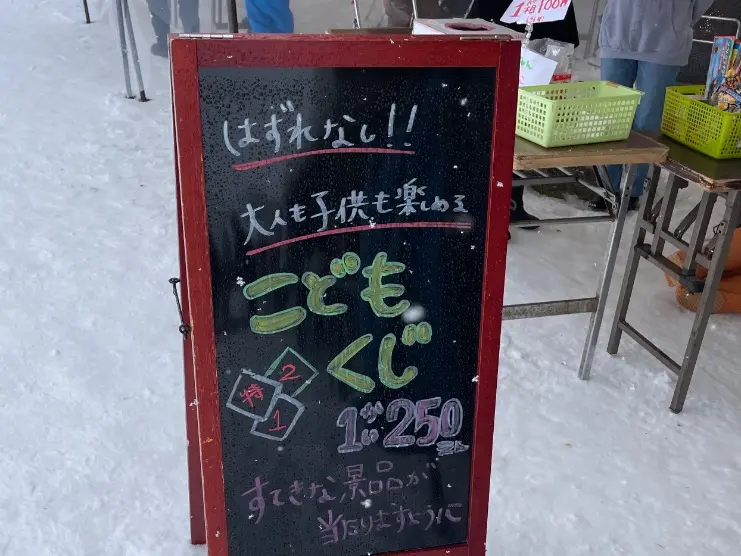 1箱100円
はずれなし!!
大人も子供も楽しめる
こども
くじ
特
2
1
1かい250
すてきな景品が
当たりますように